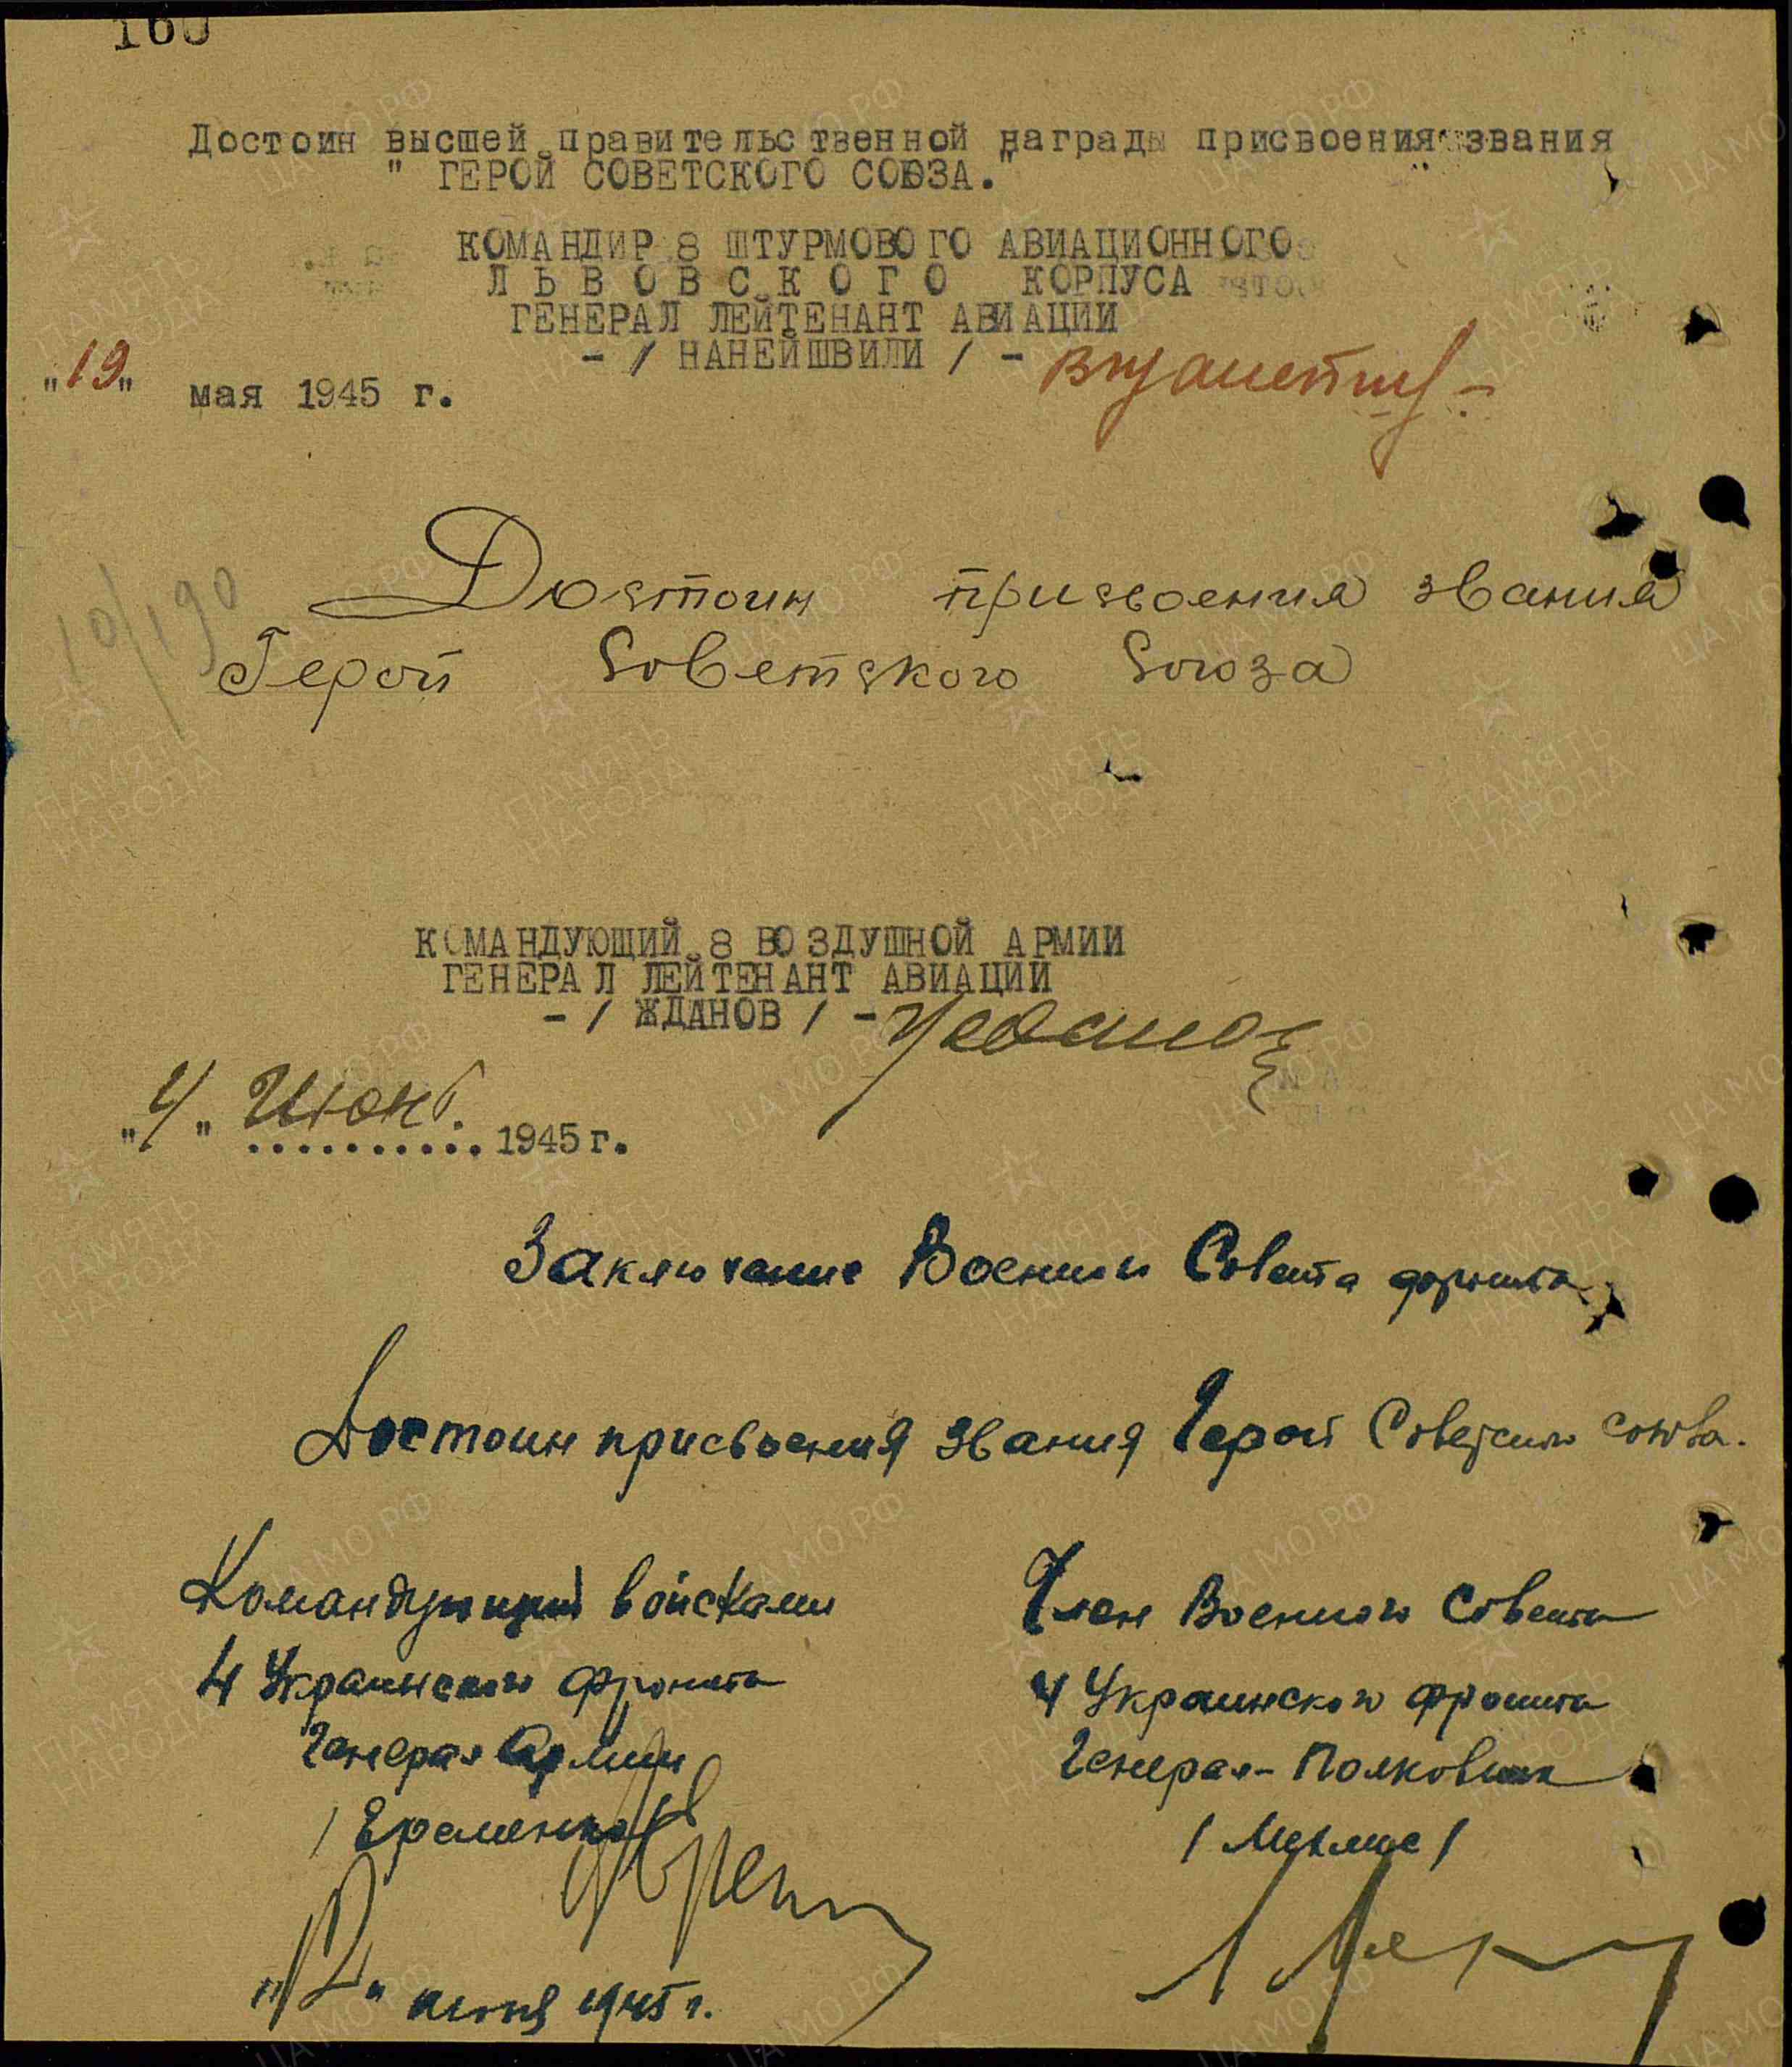 160
Достоин высшей правительственной награды присвоения звания
" ГЕРОЙ СОВЕТСКОГО СОЮЗА."
КОМАНДИР 8 ШТУРМОВОГО АВИАЦИОННОГО
ЛЬВОВСКОГО КОРПУСА
ГЕНЕРАЛ ЛЕЙТЕНАНТ АВИАЦИИ
- / НАНЕЙШВИЛИ / -
"19" мая 1945 г.
10/190
Достоин присвоения звания
Герой Советского Союза
КОМАНДУЮЩИЙ 8 ВОЗДУШНОЙ АРМИИ
ГЕНЕРАЛ ЛЕЙТЕНАНТ АВИАЦИИ
- / ЖДАНОВ / -
"4" Июнь 1945 г.
Заключение Военного Совета фронта
Достоин присвоения звания Герой Советского союза.
Командующий войсками
4 Украинского фронта
Генерал Армии
/ Еременко /
"12" июня 1945 г.
Член Военного Совета
4 Украинского фронта
Генерал-Полковник
/ Мехлис /
ПАМЯТЬ НАРОДА
ЦА МО РФ